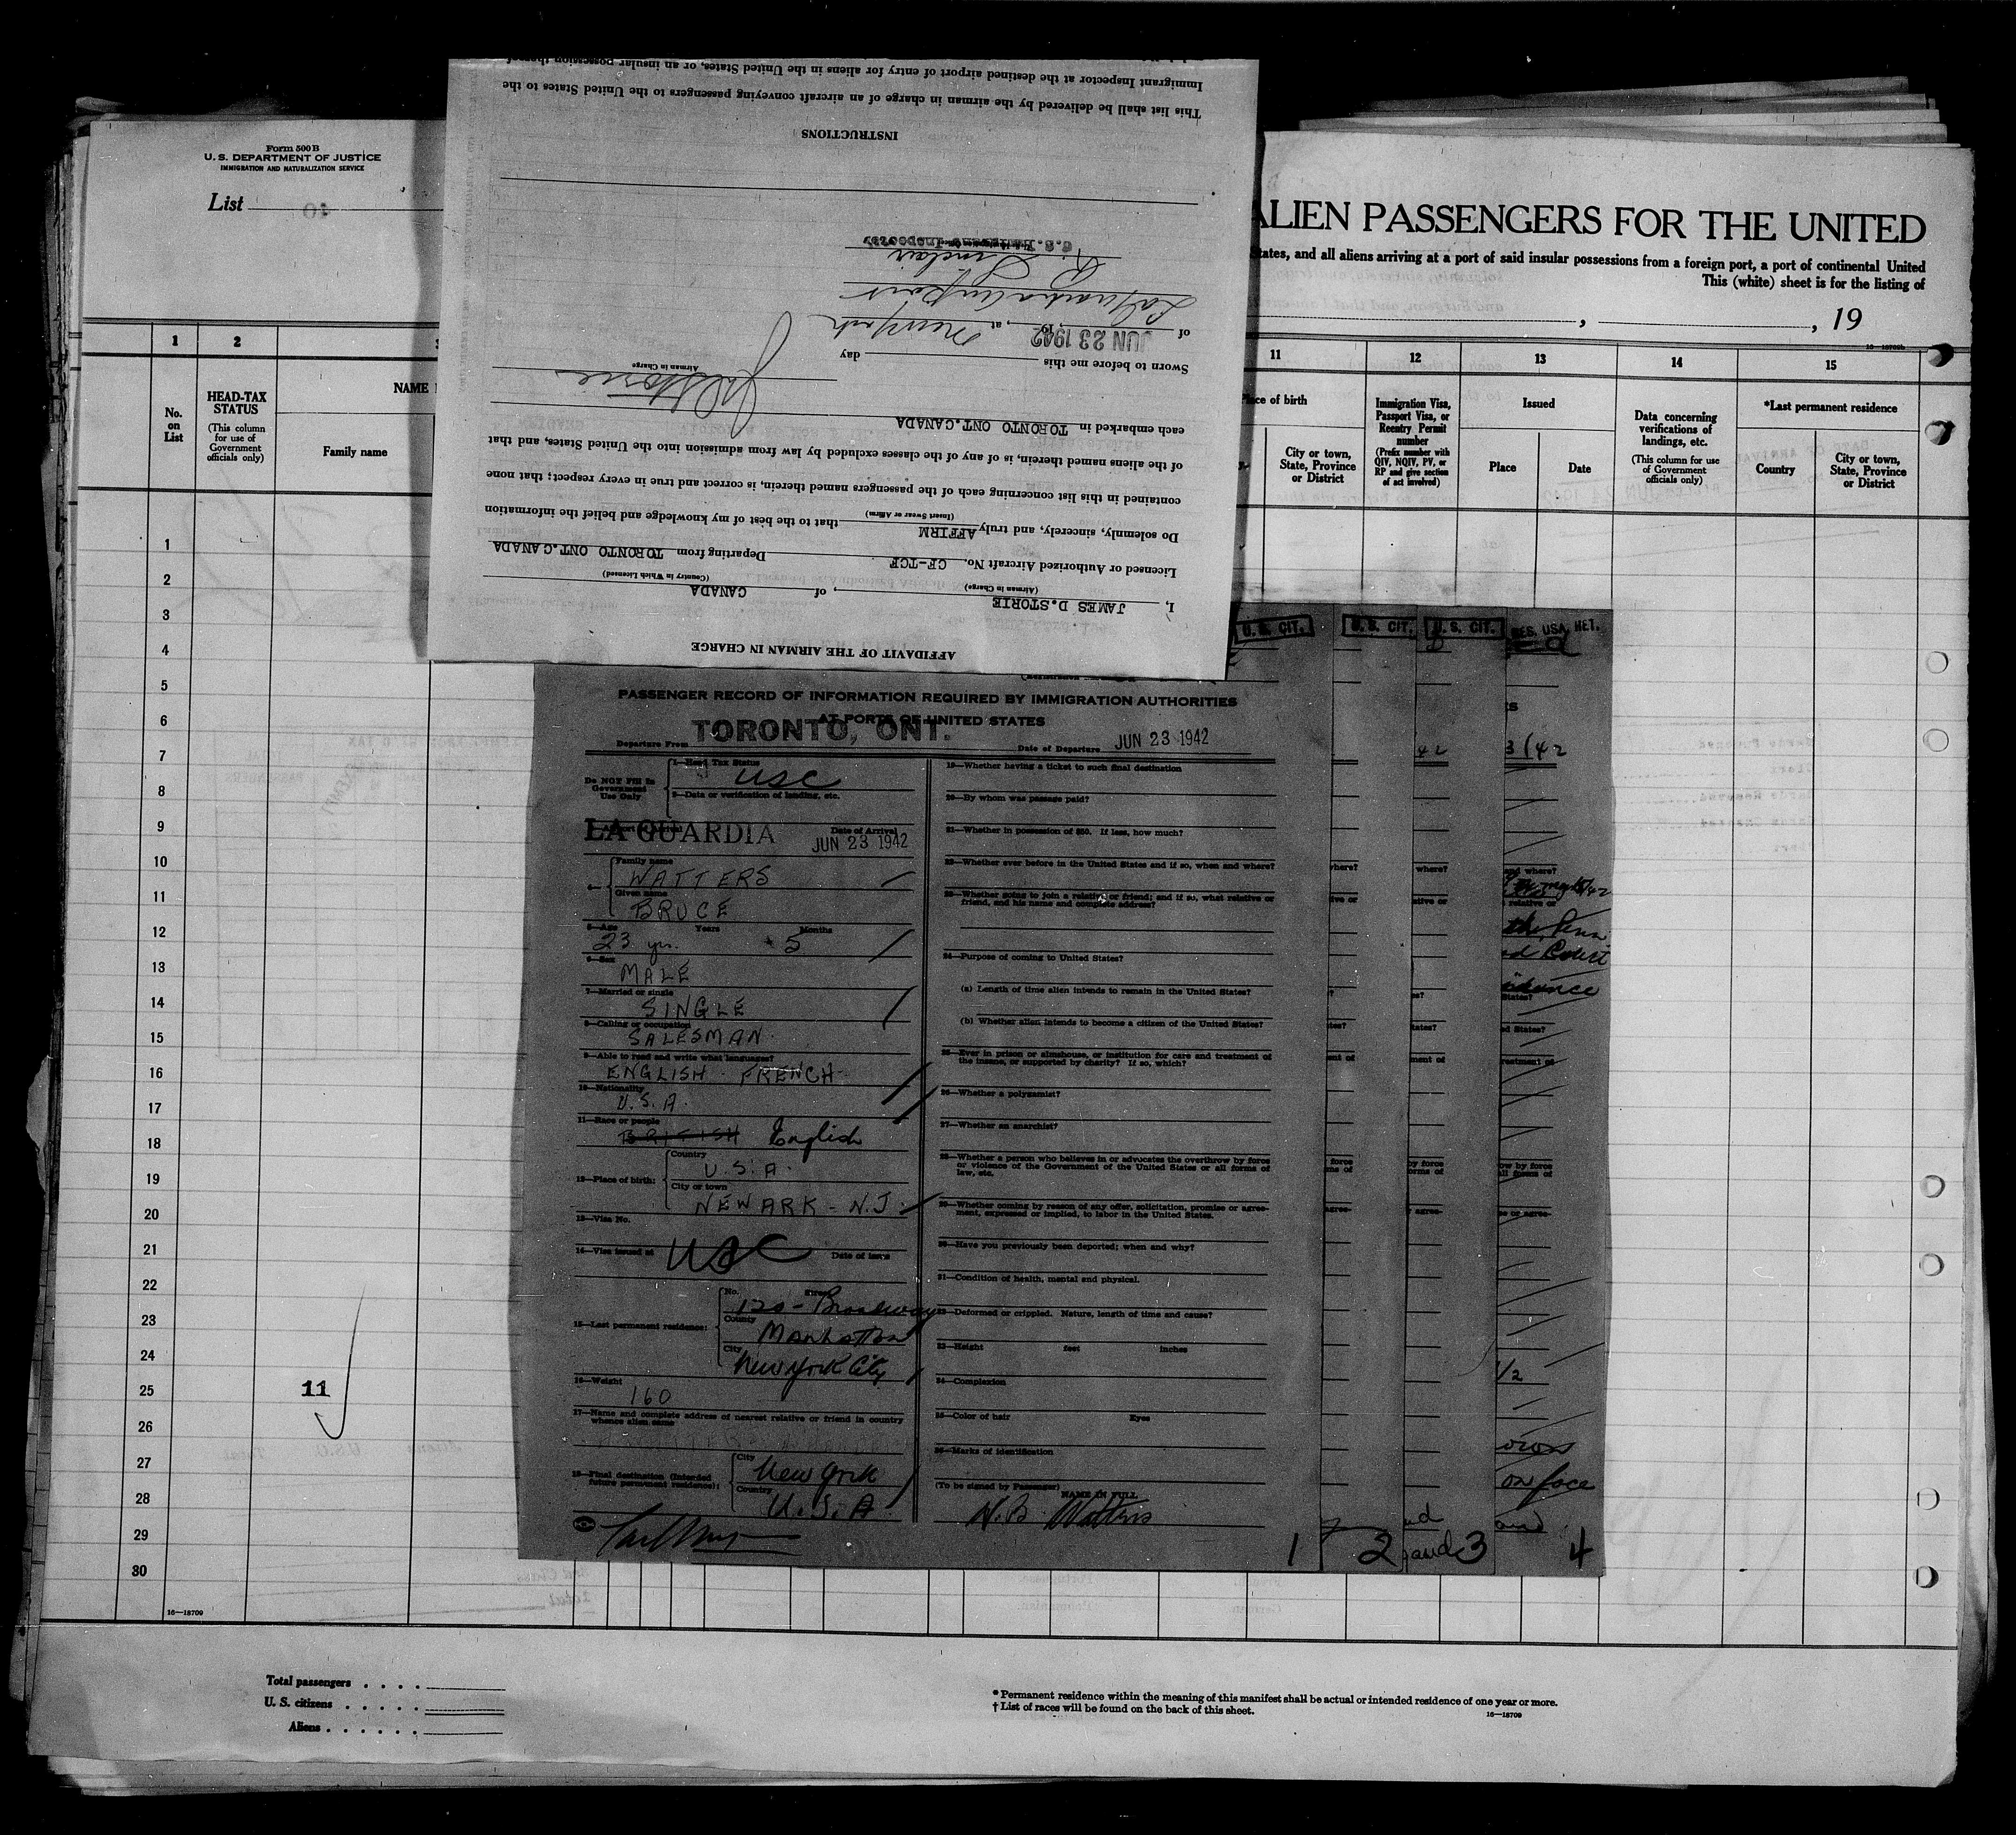 Form 500 B
U. S. DEPARTMENT OF JUSTICE
IMMIGRATION AND NATURALIZATION SERVICE
List
10
ALIEN PASSENGERS FOR THE UNITED
States, and all aliens arriving at a port of said insular possessions from a foreign port, a port of continental United
This (white) sheet is for the listing of
, , 19
16—18709b
1 2 11 12 13 14 15
No. on List
HEAD-TAX STATUS
(This column for use of Government officials only)
NAME
Family name
Place of birth
City or town, State, Province or District
Immigration Visa, Passport Visa, or Reentry Permit number
(Prefix number with QIV, NQIV, PV, or RP and give section of act involved)
Issued
Place
Date
Data concerning verifications of landings, etc.
(This column for use of Government officials only)
*Last permanent residence
Country
City or town, State, Province or District
1
2
3
4
5
6
7
8
9
10
11
12
13
14
15
16
17
18
19
20
21
22
23
24
25
26
27
28
29
30
11
16—18709
Total passengers . . . .
U. S. citizens . . . . .
Aliens . . . . . .
* Permanent residence within the meaning of this manifest shall be actual or intended residence of one year or more.
† List of races will be found on the back of this sheet.
16—18709
AFFIDAVIT OF THE AIRMAN IN CHARGE
I, JAMES D.STORIE, of CANADA
(Airman in Charge) (Country in Which Licensed)
Licensed or Authorized Aircraft No. CF-TCF Departing from TORONTO ONT.CANADA
Do solemnly, sincerely, and truly AFFIRM that to the best of my knowledge and belief the information
(Insert Swear or Affirm)
contained in this list concerning each of the passengers named therein, is correct and true in every respect; that none
of the aliens named therein, is of any of the classes excluded by law from admission into the United States, and that
each embarked in TORONTO ONT.CANADA
J D Storie
Airman in Charge
Sworn to before me this day
of JUN 23 1942, 19, at New York
LaGuardia Airport
R. Sinclair
U.S. Immigrant Inspector
INSTRUCTIONS
This list shall be delivered by the airman in charge of an aircraft conveying passengers to the United States to the
Immigrant Inspector at the destined airport of entry for aliens in the United States, or an insular possession thereof
U. S. CIT.
U. S. CIT.
U. S. CIT.
RES. USA, H.T.
PASSENGER RECORD OF INFORMATION REQUIRED BY IMMIGRATION AUTHORITIES
AT PORTS OF UNITED STATES
Departure From TORONTO, ONT. Date of Departure JUN 23 1942
Do NOT Fill In Government Use Only
1—Head Tax Status USC
2—Data or verification of landing, etc.
LA GUARDIA
Date of Arrival
JUN 23 1942
Family name
WATTERS
Given name
BRUCE
5—Age Years Months
23 yrs. 5
6—Sex
MALE
7—Married or single
SINGLE
8—Calling or occupation
SALESMAN
9—Able to read and write what languages?
ENGLISH - FRENCH
10—Nationality
U.S.A.
11—Race or people
BRITISH English
12—Place of birth:
Country
U.S.A.
City or town
NEWARK - N.J.
13—Visa No.
14—Visa issued at USC Date of issue
15—Last permanent residence:
No. Street
120 - Broadway
County
Manhattan
City
New York City
16—Weight
160
17—Name and complete address of nearest relative or friend in country whence alien came
18—Final destination (intended future permanent residence):
City
New York
Country
U.S.A
19—Whether having a ticket to such final destination
20—By whom was passage paid?
21—Whether in possession of $50. If less, how much?
22—Whether ever before in the United States and if so, when and where?
23—Whether going to join a relative or friend; and if so, what relative or friend, and his name and complete address?
24—Purpose of coming to United States?
(a) Length of time alien intends to remain in the United States?
(b) Whether alien intends to become a citizen of the United States?
25—Ever in prison or almshouse, or institution for care and treatment of the insane, or supported by charity? If so, which?
26—Whether a polygamist?
27—Whether an anarchist?
28—Whether a person who believes in or advocates the overthrow by force or violence of the Government of the United States or all forms of law, etc.
29—Whether coming by reason of any offer, solicitation, promise or agreement, expressed or implied, to labor in the United States.
30—Have you previously been deported; when and why?
31—Condition of health, mental and physical.
32—Deformed or crippled. Nature, length of time and cause?
33—Height feet inches
34—Complexion
35—Color of hair Eyes
36—Marks of identification
(To be signed by Passenger) NAME IN FULL
H. B. Watters
42
3/42
1/2
on face
1
2
3
4